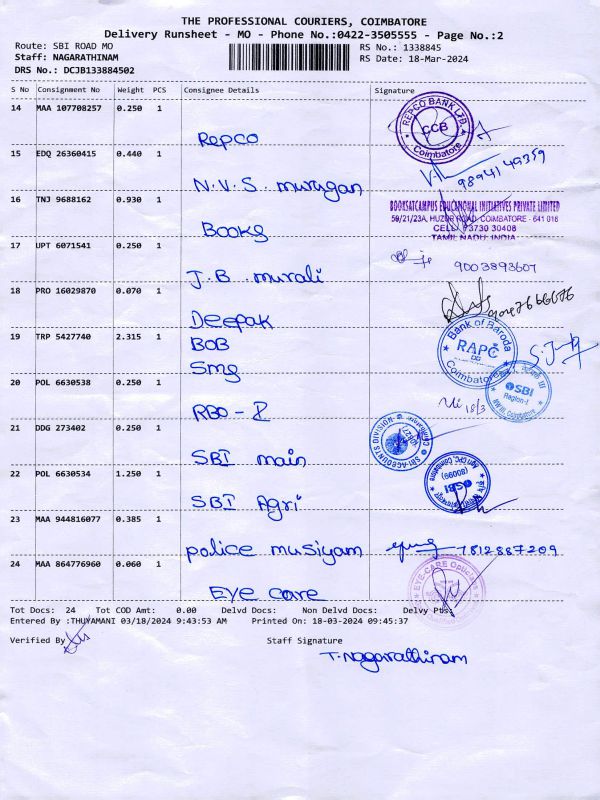 THE PROFESSIONAL COURIERS, COIMBATORE
Delivery Runsheet - MO - Phone No.:0422-3505555 - Page No.:2
Route: SBI ROAD MO RS No.: 1338845
Staff: NAGARATHINAM RS Date: 18-Mar-2024
DRS No.: DCJB133884502
S No Consignment No Weight PCS Consignee Details Signature
14 MAA 107708257 0.250 1 Repco
REPCO BANK LTD. CCB Coimbatore
15 EDQ 26360415 0.440 1 N.V.S. murugan 9894149359
16 TNJ 9688162 0.930 1 Books
BOOKSATCAMPUS EDUCATIONAL INITIATIVES PRIVATE LIMITED
59/21/23A, HUZUR ROAD, COIMBATORE - 641 018
CELL: 93730 30408
TAMIL NADU, INDIA
17 UPT 6071541 0.250 1 J.B. murali 9003893607
18 PRO 16029870 0.070 1 Deepak
19 TRP 5427740 2.315 1 BOB
Smg
Bank of Baroda RAPC Coimbatore
20 POL 6630538 0.250 1 RBO-I 18/3
SBI Region-I Coimbatore
21 DDG 273402 0.250 1 SBI main
SBI-ACCOUNTS DIVISION
22 POL 6630534 1.250 1 SBI Agri
SBI
23 MAA 944816077 0.385 1 police musiyam 7812887209
24 MAA 864776960 0.060 1 EYE care
EYE-CARE Opticians
Tot Docs: 24 Tot COD Amt: 0.00 Delvd Docs: Non Delvd Docs: Delvy Pts:
Entered By :THUYAMANI 03/18/2024 9:43:53 AM Printed On: 18-03-2024 09:45:37
Verified By Staff Signature
T.Nagarathinam